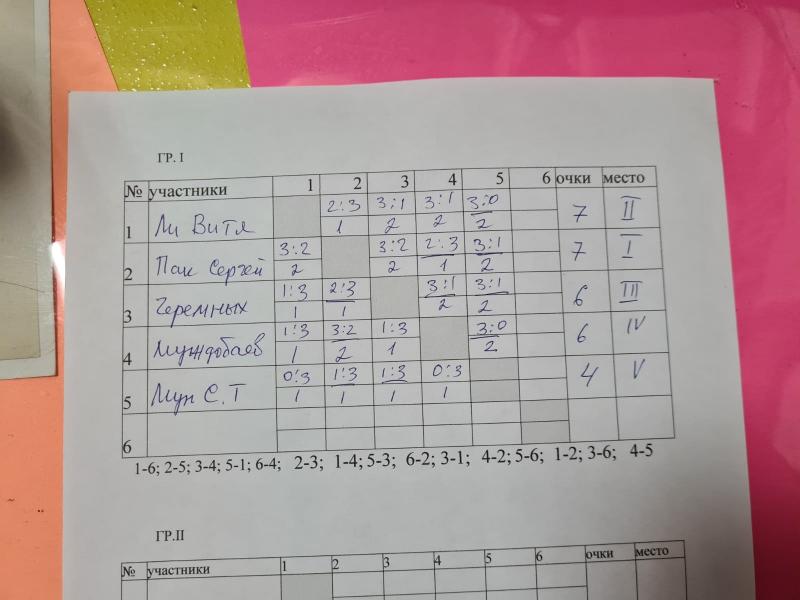 ГР. I
№ участники 1 2 3 4 5 6 очки место
2:3 3:1 3:1 3:0
1 Ли Витя 1 2 2 2 7 II
3:2 3:2 2:3 3:1
2 Пак Сергей 2 2 1 2 7 I
1:3 2:3 3:1 3:1
3 Черемных 1 1 2 2 6 III
1:3 3:2 1:3 3:0
4 Муждобаев 1 2 1 2 6 IV
0:3 1:3 1:3 0:3
5 Мун С.Т 1 1 1 1 4 V
6
1-6; 2-5; 3-4; 5-1; 6-4; 2-3; 1-4; 5-3; 6-2; 3-1; 4-2; 5-6; 1-2; 3-6; 4-5
ГР.II
№ участники 1 2 3 4 5 6 очки место